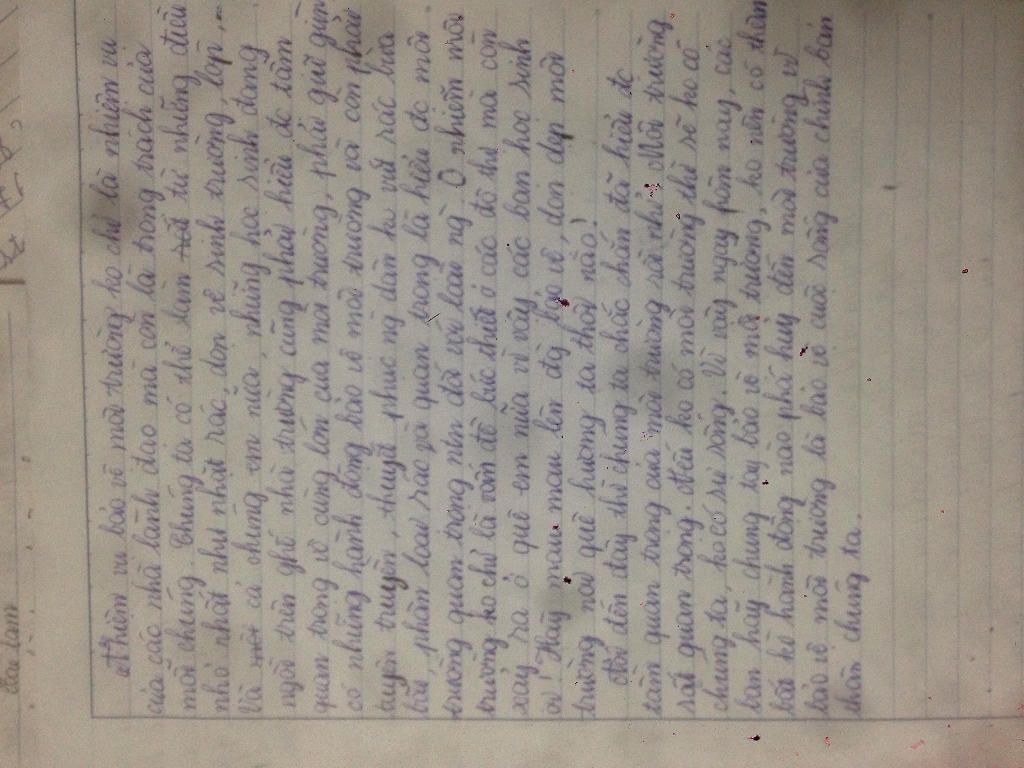 Bài làm
Nhiệm vụ bảo vệ môi trường ko chỉ là nhiệm vụ
của các nhà lãnh đạo mà còn là trọng trách của
mỗi chúng. Chúng ta có thể làm từ những điều
nhỏ nhất như nhặt rác, dọn vệ sinh trường, lớp,...
Và cả chúng em nữa, những học sinh đang
ngồi trên ghế nhà trường cũng phải hiểu đc tầm
quan trọng vô cùng lớn của môi trường, phải giữ gìn
có những hành động bảo vệ môi trường và còn phải
tuyên truyền, thuyết phục ng dân ko vứt rác bừa
bãi, phân loại rác và quan trọng là hiểu đc môi
trường quan trọng ntn đối với loài ng. Ô nhiễm môi
trường ko chỉ là vấn đề bức thiết ở các đô thị mà còn
xảy ra ở quê em nữa vì vậy các bạn học sinh
ơi! Hãy mau mau lên để bảo vệ, dọn dẹp môi
trường nơi quê hương ta thôi nào!
Nói đến đây thì chúng ta chắc chắn đã hiểu đc
tầm quan trọng của môi trường rồi nhỉ. Môi trường
rất quan trọng. Nếu ko có môi trường thì sẽ ko có
chúng ta, ko có sự sống. Vì vậy ngay hôm nay, các
bạn hãy chung tay bảo vệ môi trường, ko nên có thêm
bất kì hành động nào phá hủy đến môi trường vì
bảo vệ môi trường là bảo vệ cuộc sống của chính bản
thân chúng ta.